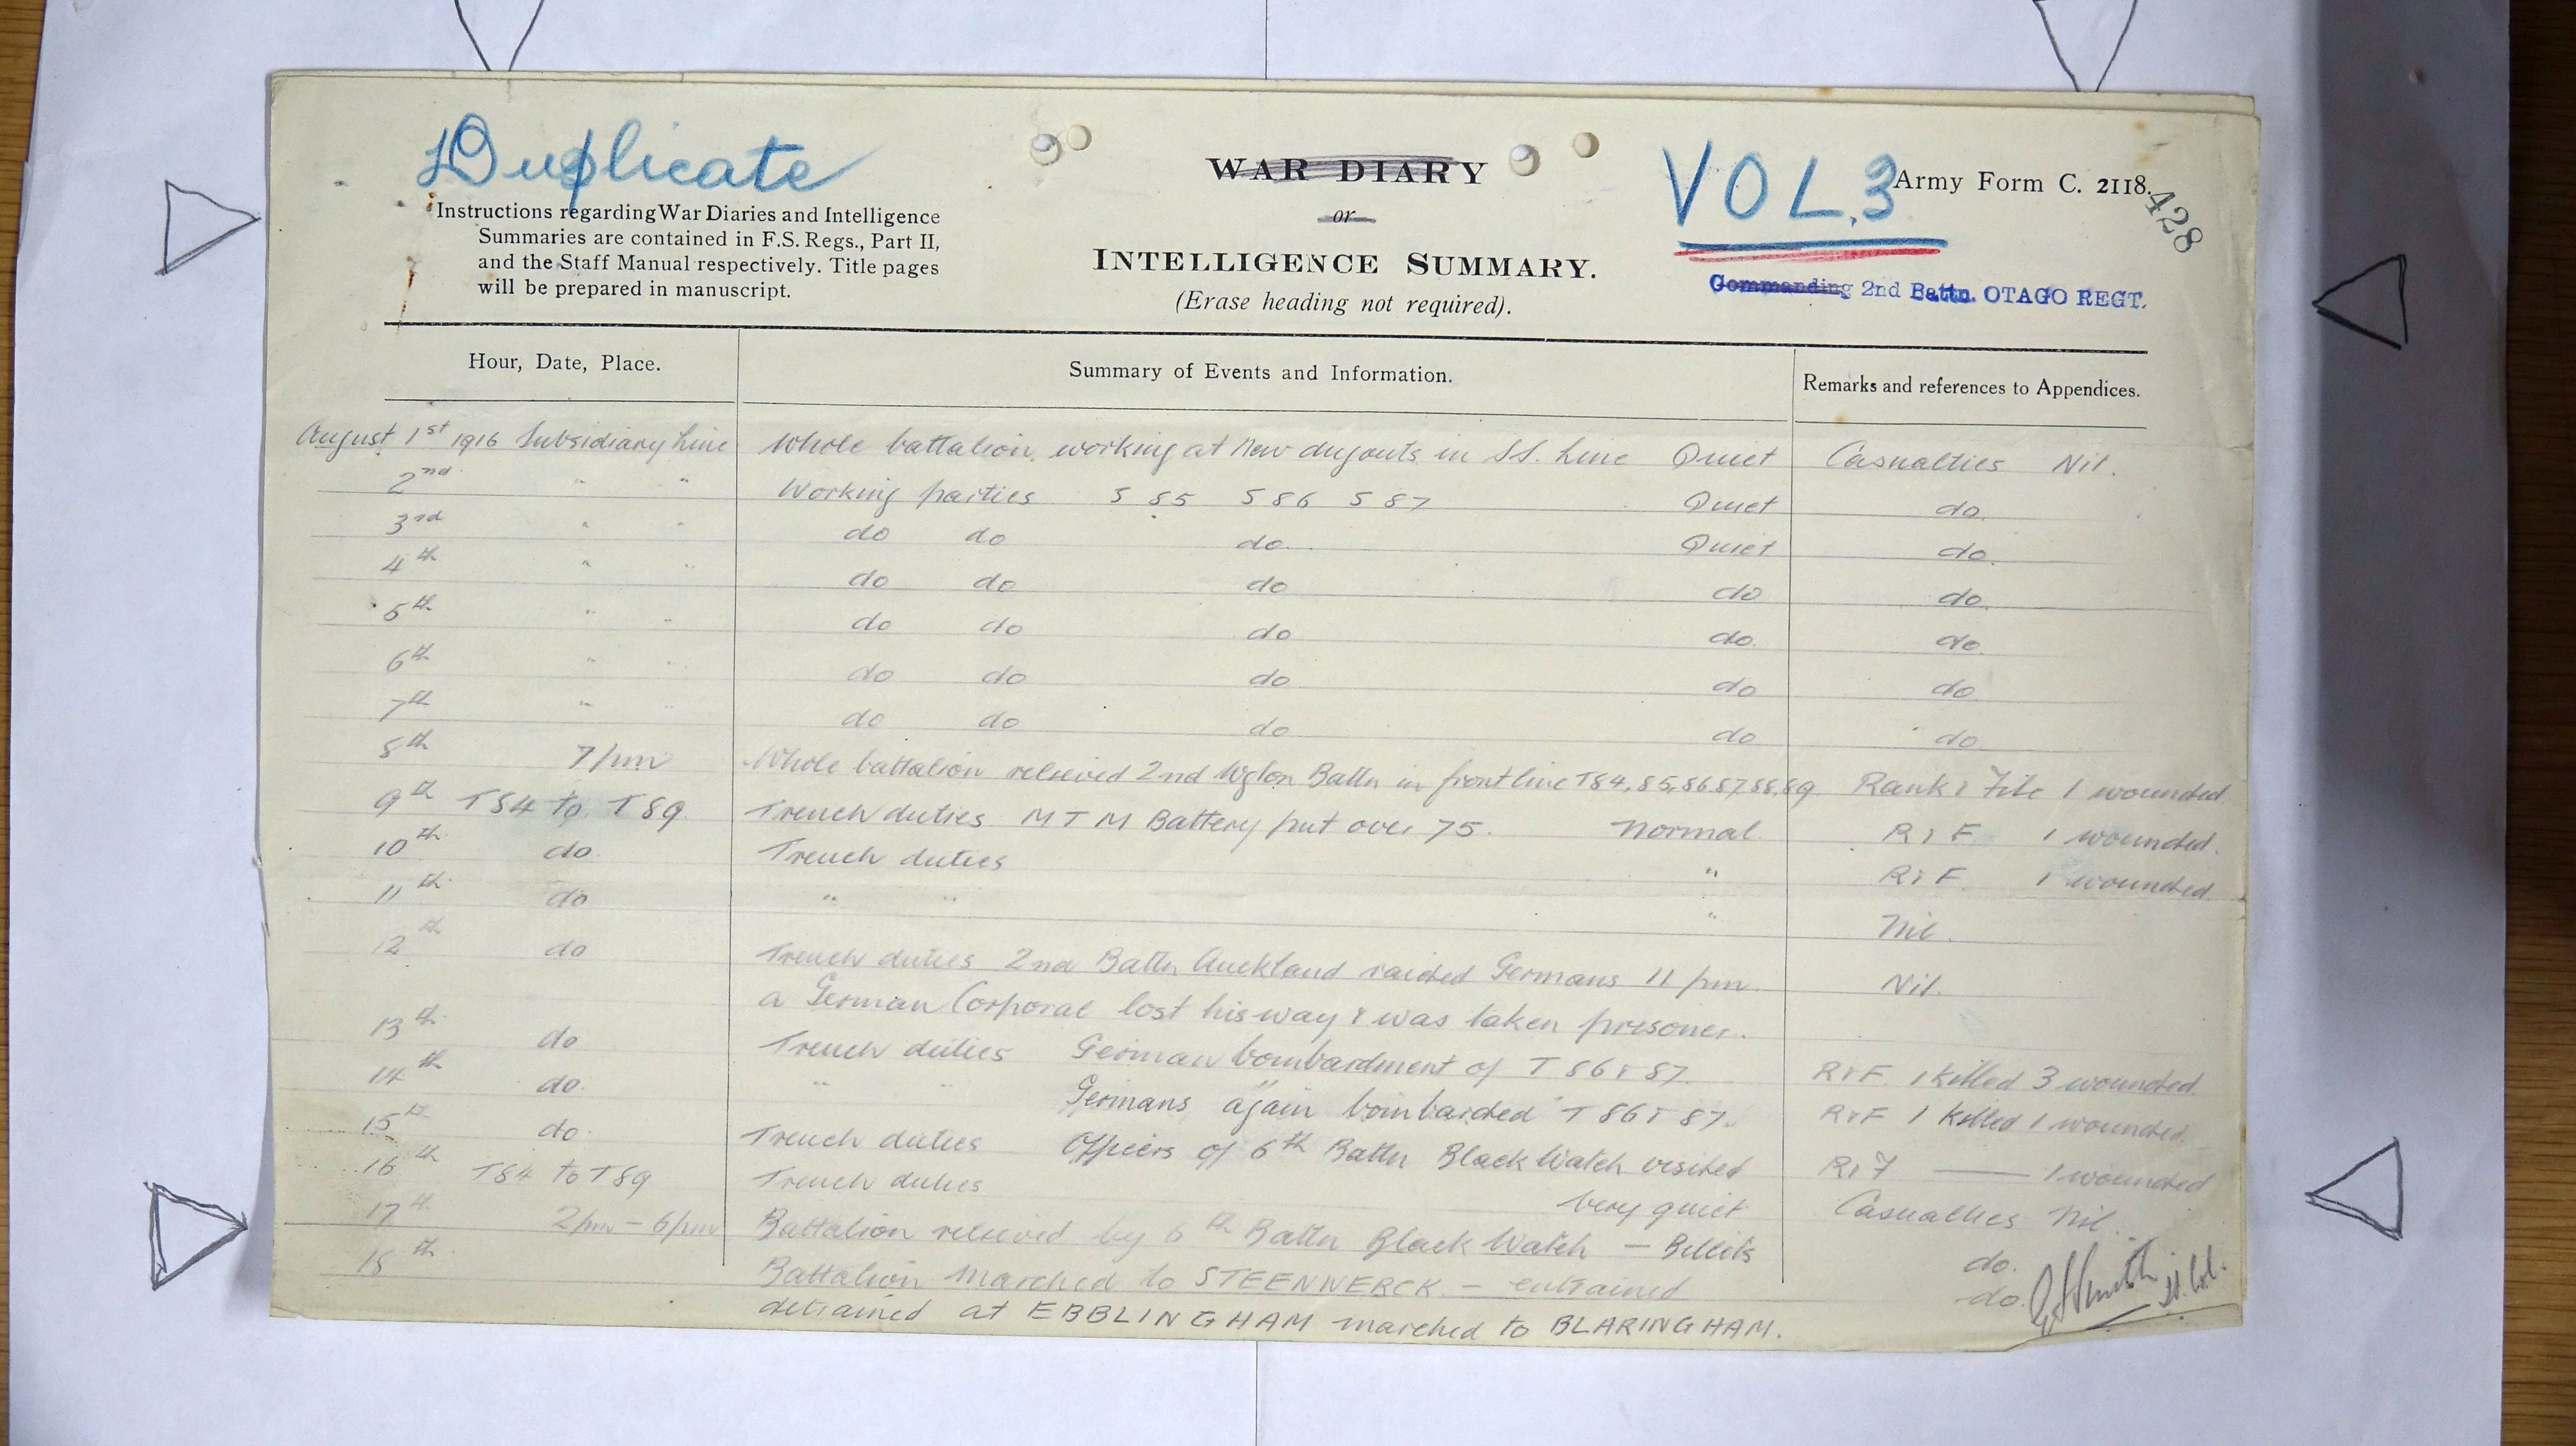 Duplicate
WAR DIARY
or
INTELLIGENCE SUMMARY.
(Erase heading not required).
VOL. 3
Army Form C. 2118.
428
Instructions regarding War Diaries and Intelligence
Summaries are contained in F.S. Regs., Part II,
and the Staff Manual respectively. Title pages
will be prepared in manuscript.
Commanding 2nd Battn. OTAGO REGT.
Hour, Date, Place. Summary of Events and Information. Remarks and references to Appendices.
August 1st 1916 Subsidiary Line Whole battalion working at New dugouts in SS. Line Quiet Casualties Nil.
2nd " " Working parties S 85 S 86 S 87 Quiet do.
3rd " " do do do. Quiet do.
4th " " do do do do do.
5th " " do do do do. do.
6th " " do do do do do
7th " " do do do do do
8th 7pm Whole battalion relieved 2nd Wgton Battn in front line T84, 85, 86 87, 88, 89 Rank & File 1 wounded.
9th T84 to T89. Trench duties MTM Battery put over 75. Normal R & F. 1 wounded.
10th do. Trench duties " R & F. 1 wounded
11th do " " " Nil.
12th do Trench duties 2nd Battn Auckland raided Germans 11 pm. Nil.
a German Corporal lost his way & was taken prisoner.
13th do Trench duties German bombardment of T 86 & 87. R & F. 1 killed 3 wounded
14th do. " " Germans again bombarded T 86 & 87. R & F 1 killed 1 wounded.
15th do. Trench duties Officers of 6th Battn Black Watch visited R & F — 1 wounded
16th T84 to T89 Trench duties very quiet Casualties Nil.
17th 2pm – 6pm Battalion relieved by 6th Battn Black Watch – Billets do.
18th Battalion marched to STEENWERCK. – entrained do. Smith Lt. Col.
detrained at EBBLINGHAM marched to BLARINGHAM.